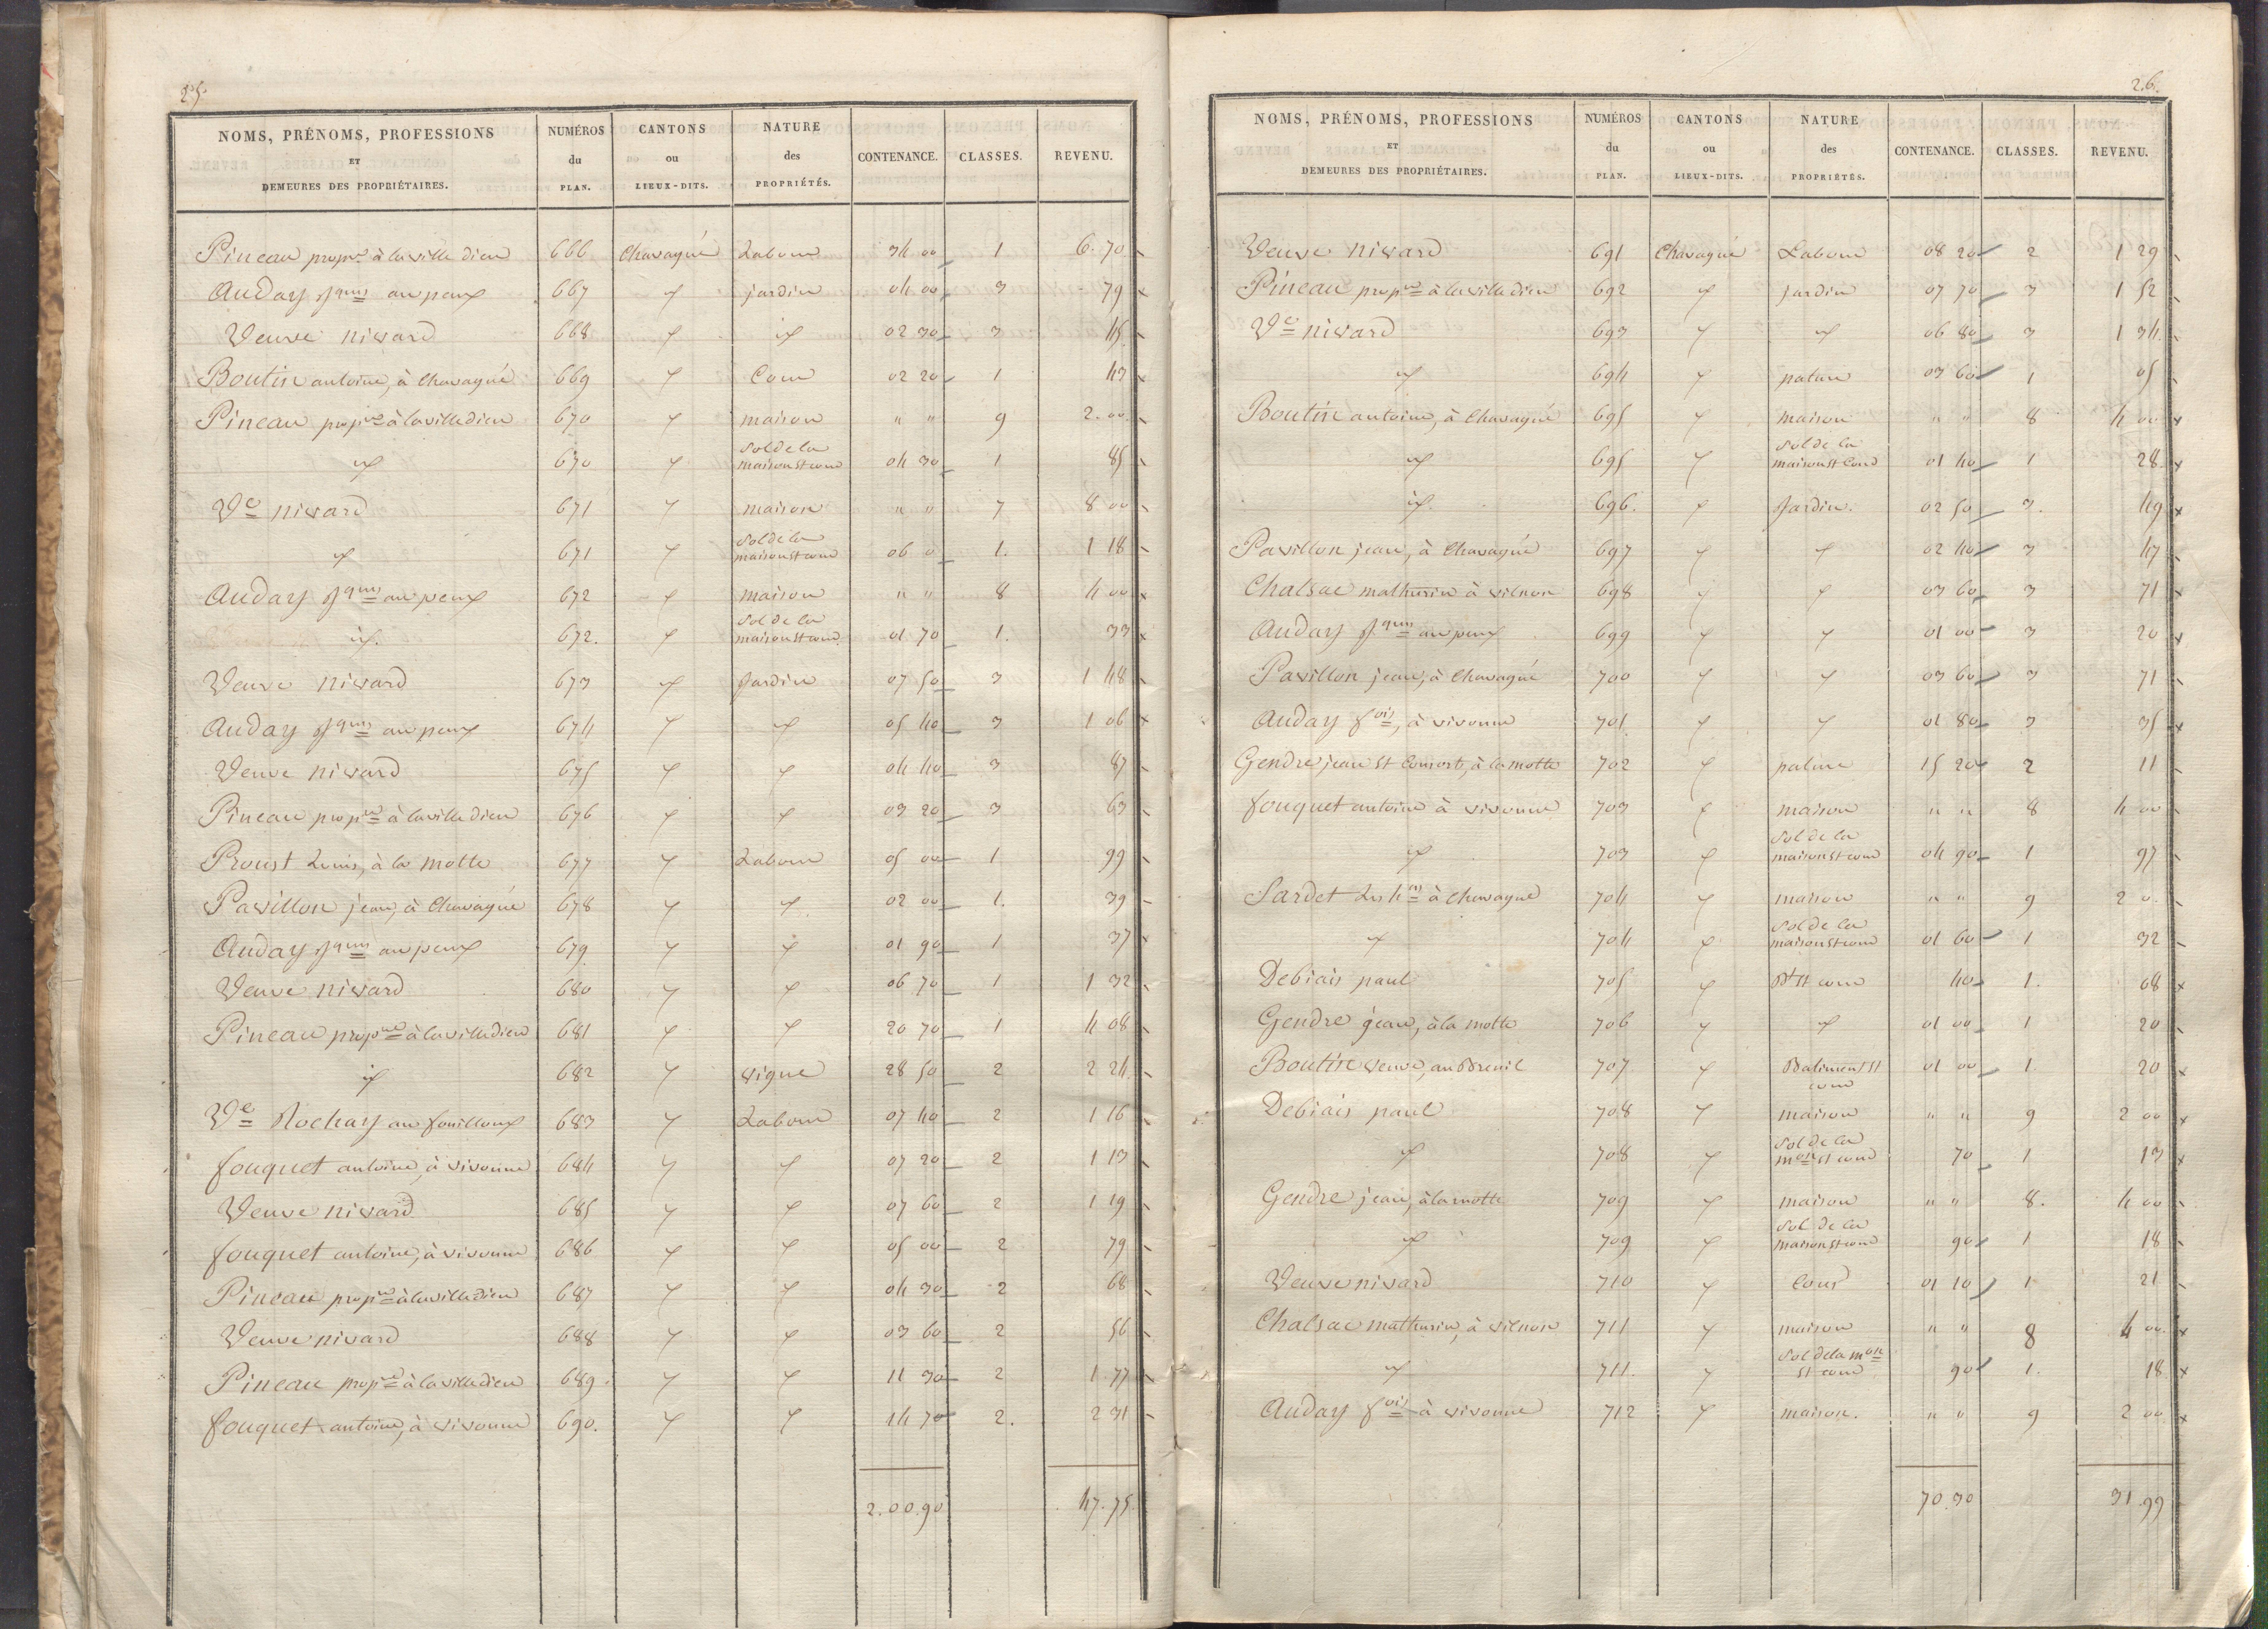 25.
NOMS, PRÉNOMS, PROFESSIONS ET DEMEURES DES PROPRIÉTAIRES. | NUMÉROS du PLAN. | CANTONS ou LIEUX-DITS. | NATURE des PROPRIÉTÉS. | CONTENANCE. | CLASSES. | REVENU.
Pineau propre à la ville dieu 666 Chavagné Labour 34 00 1 6.70
Auday Jques au peux 667 id jardin 04 00 3 79
Veuve nivard 668 id id 02 30 3 45
Boutin antoine, à Chavagné 669 id Cour 02 20 1 43
Pineau propre à la ville dieu 670 id maison " " 9 2.00
id 670 id Sol de la maison et cour 04 30 1 85
Ve nivard 671 id maison " " 7 8 00
id 671 id Sol de la maison et cour 06 0 1. 1 18
Auday Jques au peux 672 id maison " " 8 4 00
id. 672. id Sol de la maison et cour 01 70 1. 33
Veuve nivard 673 id Jardin 07 50 3 1 48
Auday Jques au peux 674 id id 05 40 3 1 06
Veuve nivard 675 id id 04 40 3 87
Pineau propre à la ville dieu 676 id id 03 20 3 63
Proust Louis, à la motte 677 id Labour 05 00 1 99
Pavillon jean, à Chavagné 678 id id 02 00 1. 39
Auday Jques au peux 679 id id 01 90 1 37
Veuve nivard 680 id id 06 70 1 1 32
Pineau propre à la ville dieu 681 id id 20 70 1 4 08
id 682 id vigne 28 50 2 2 24
Ve Rochay au fouilloux 683 id Labour 07 40 2 1 16
fouquet antoine, à vivonne 684 id id 07 20 2 1 13
Veuve nivard 685 id id 07 60 2 1 19
fouquet antoine, à vivonne 686 id id 05 00 2 79
Pineau propre à la ville dieu 687 id id 04 30 2 68
Veuve nivard 688 id id 03 60 2 56
Pineau propre à la ville dieu 689. id id 11 30 2 1.77
fouquet antoine, à vivonne 690. id id 14 70 2. 2 31
2.00.90 47.75
26.
NOMS, PRÉNOMS, PROFESSIONS ET DEMEURES DES PROPRIÉTAIRES. | NUMÉROS du PLAN. | CANTONS ou LIEUX-DITS. | NATURE des PROPRIÉTÉS. | CONTENANCE. | CLASSES. | REVENU.
Veuve nivard 691 Chavagné Labour 08 20 2 1 29
Pineau propre à la ville dieu 692 id jardin 07 70 3 1 52
Ve nivard 693 id id 06 80 3 1 34
id 694 id pature 03 60 1 05
Boutin antoine, à Chavagné 695 id maison " " 8 4 00
id 695 id Sol de la maison et Cour 01 40 1 28
id. 696. id Jardin. 02 50 3. 49
Pavillon jean, à Chavagné 697 id id 02 40 3 47
Chalsac mathurin à vilnon 698 id id 03 60 3 71
Auday Jques au peux 699 id id 01 00 3 20
Pavillon jean, à Chavagné 700 id id 03 60 3 71
Auday fois, à vivonne 701 id id 01 80 3 35
Gendre jean et Consort, à la motte 702 id pature 15 20 2 11
fouquet antoine à vivonne 703 id maison " " 8 4 00
id 703 id Sol de la maison et cour 04 90 1 97
Sardet à Chavagné 704 id maison " " 9 2 0.
id 704 id Sol de la maison et cour 01 60 1 32
Debiais paul 705 id Bt et cour 40 1. 08
Gendre jean, à la motte 706 id id 01 00 1 20
Boutin veuve, au Breuil 707 id Batiment et cour 01 00 1 20
Debiais paul 708 id maison " " 9 2 00
id 708 id Sol de la mon et cour 70 1 13
Gendre jean, à la motte 709 id maison " " 8. 4 00
id 709 id Sol de la maison et cour 90 1 18
Veuve nivard 710 id Cour 01 10 1 21
Chalsac mathurin, à vilnon 711 id maison " " 8 4 00.
id 711. id Sol de la mon et cour 90 1. 18
Auday fois à vivonne 712 id maison. " " 9 2 00
70.30 31.99